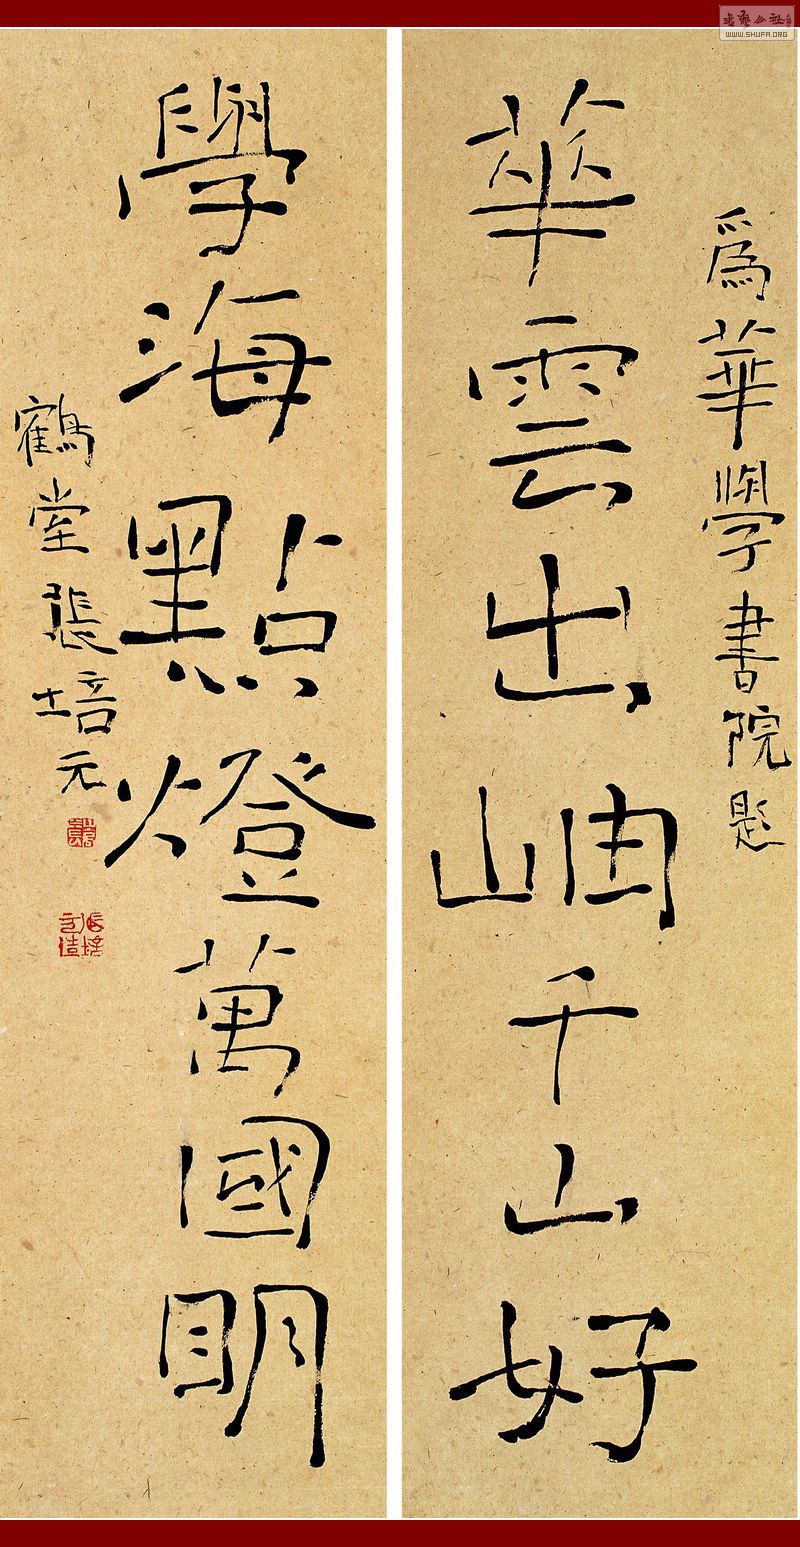 為華學書院題
華雲出岫千山好
學海點燈萬國明
鶴堂張培元
書艺公社
www.SHUFA.ORG